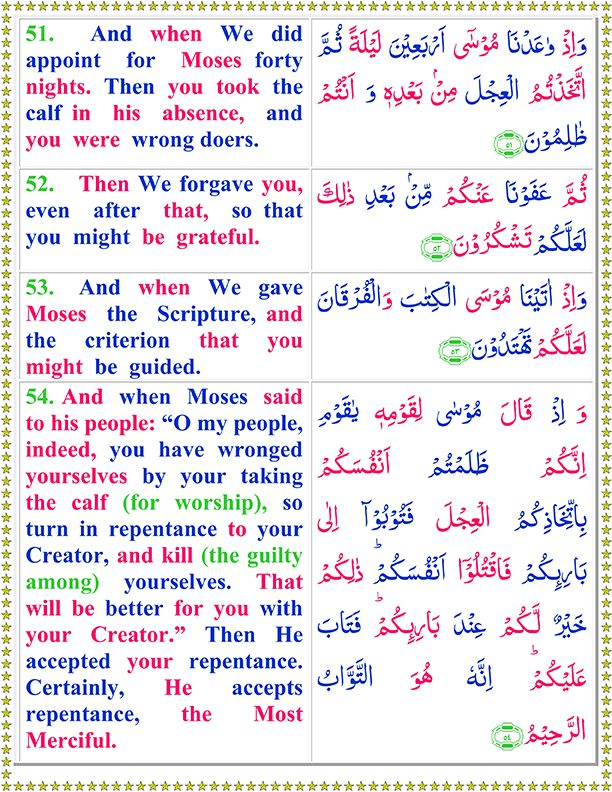 51. And when We did
appoint for Moses forty
nights. Then you took the
calf in his absence, and
you were wrong doers.
وَاِذْ وٰعَدْنَا مُوْسٰٓى اَرْبَعِيْنَ لَيْلَةً ثُمَّ
اتَّخَذْتُمُ الْعِجْلَ مِنْۢ بَعْدِهٖ وَ اَنْتُمْ
ظٰلِمُوْنَ ﴿٥١﴾
52. Then We forgave you,
even after that, so that
you might be grateful.
ثُمَّ عَفَوْنَا عَنْكُمْ مِّنْۢ بَعْدِ ذٰلِكَ
لَعَلَّكُمْ تَشْكُرُوْنَ ﴿٥٢﴾
53. And when We gave
Moses the Scripture, and
the criterion that you
might be guided.
وَاِذْ اٰتَيْنَا مُوْسَى الْكِتٰبَ وَالْفُرْقَانَ
لَعَلَّكُمْ تَهْتَدُوْنَ ﴿٥٣﴾
54. And when Moses said
to his people: “O my people,
indeed, you have wronged
yourselves by your taking
the calf (for worship), so
turn in repentance to your
Creator, and kill (the guilty
among) yourselves. That
will be better for you with
your Creator.” Then He
accepted your repentance.
Certainly, He accepts
repentance, the Most
Merciful.
وَ اِذْ قَالَ مُوْسٰى لِقَوْمِهٖ يٰقَوْمِ
اِنَّكُمْ ظَلَمْتُمْ اَنْفُسَكُمْ
بِاتِّخَاذِكُمُ الْعِجْلَ فَتُوْبُوْۤا اِلٰى
بَارِىِٕكُمْ فَاقْتُلُوْۤا اَنْفُسَكُمْؕ ذٰلِكُمْ
خَيْرٌ لَّكُمْ عِنْدَ بَارِىِٕكُمْؕ فَتَابَ
عَلَيْكُمْؕ اِنَّهٗ هُوَ التَّوَّابُ
الرَّحِيْمُ ﴿٥٤﴾